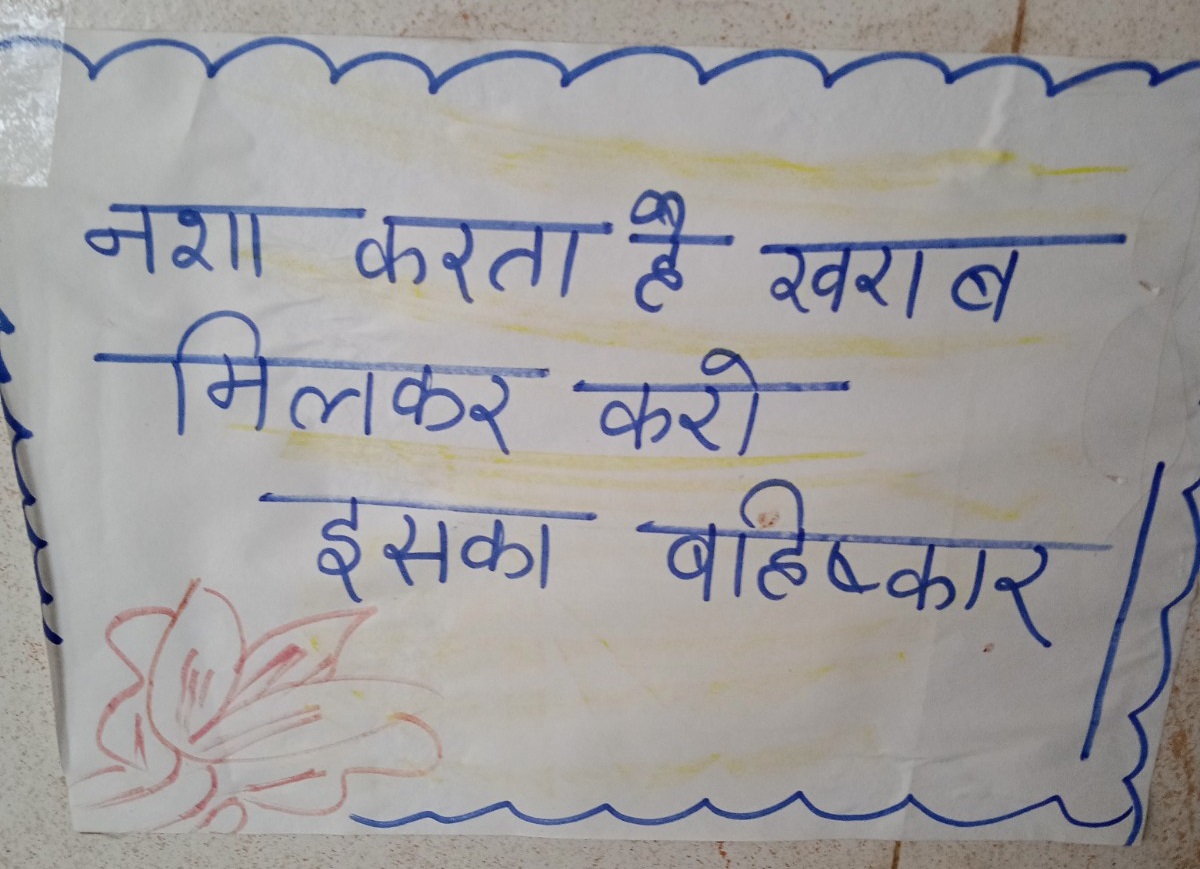 नशा करता है खराब
मिलकर करो
इसका बहिष्कार।